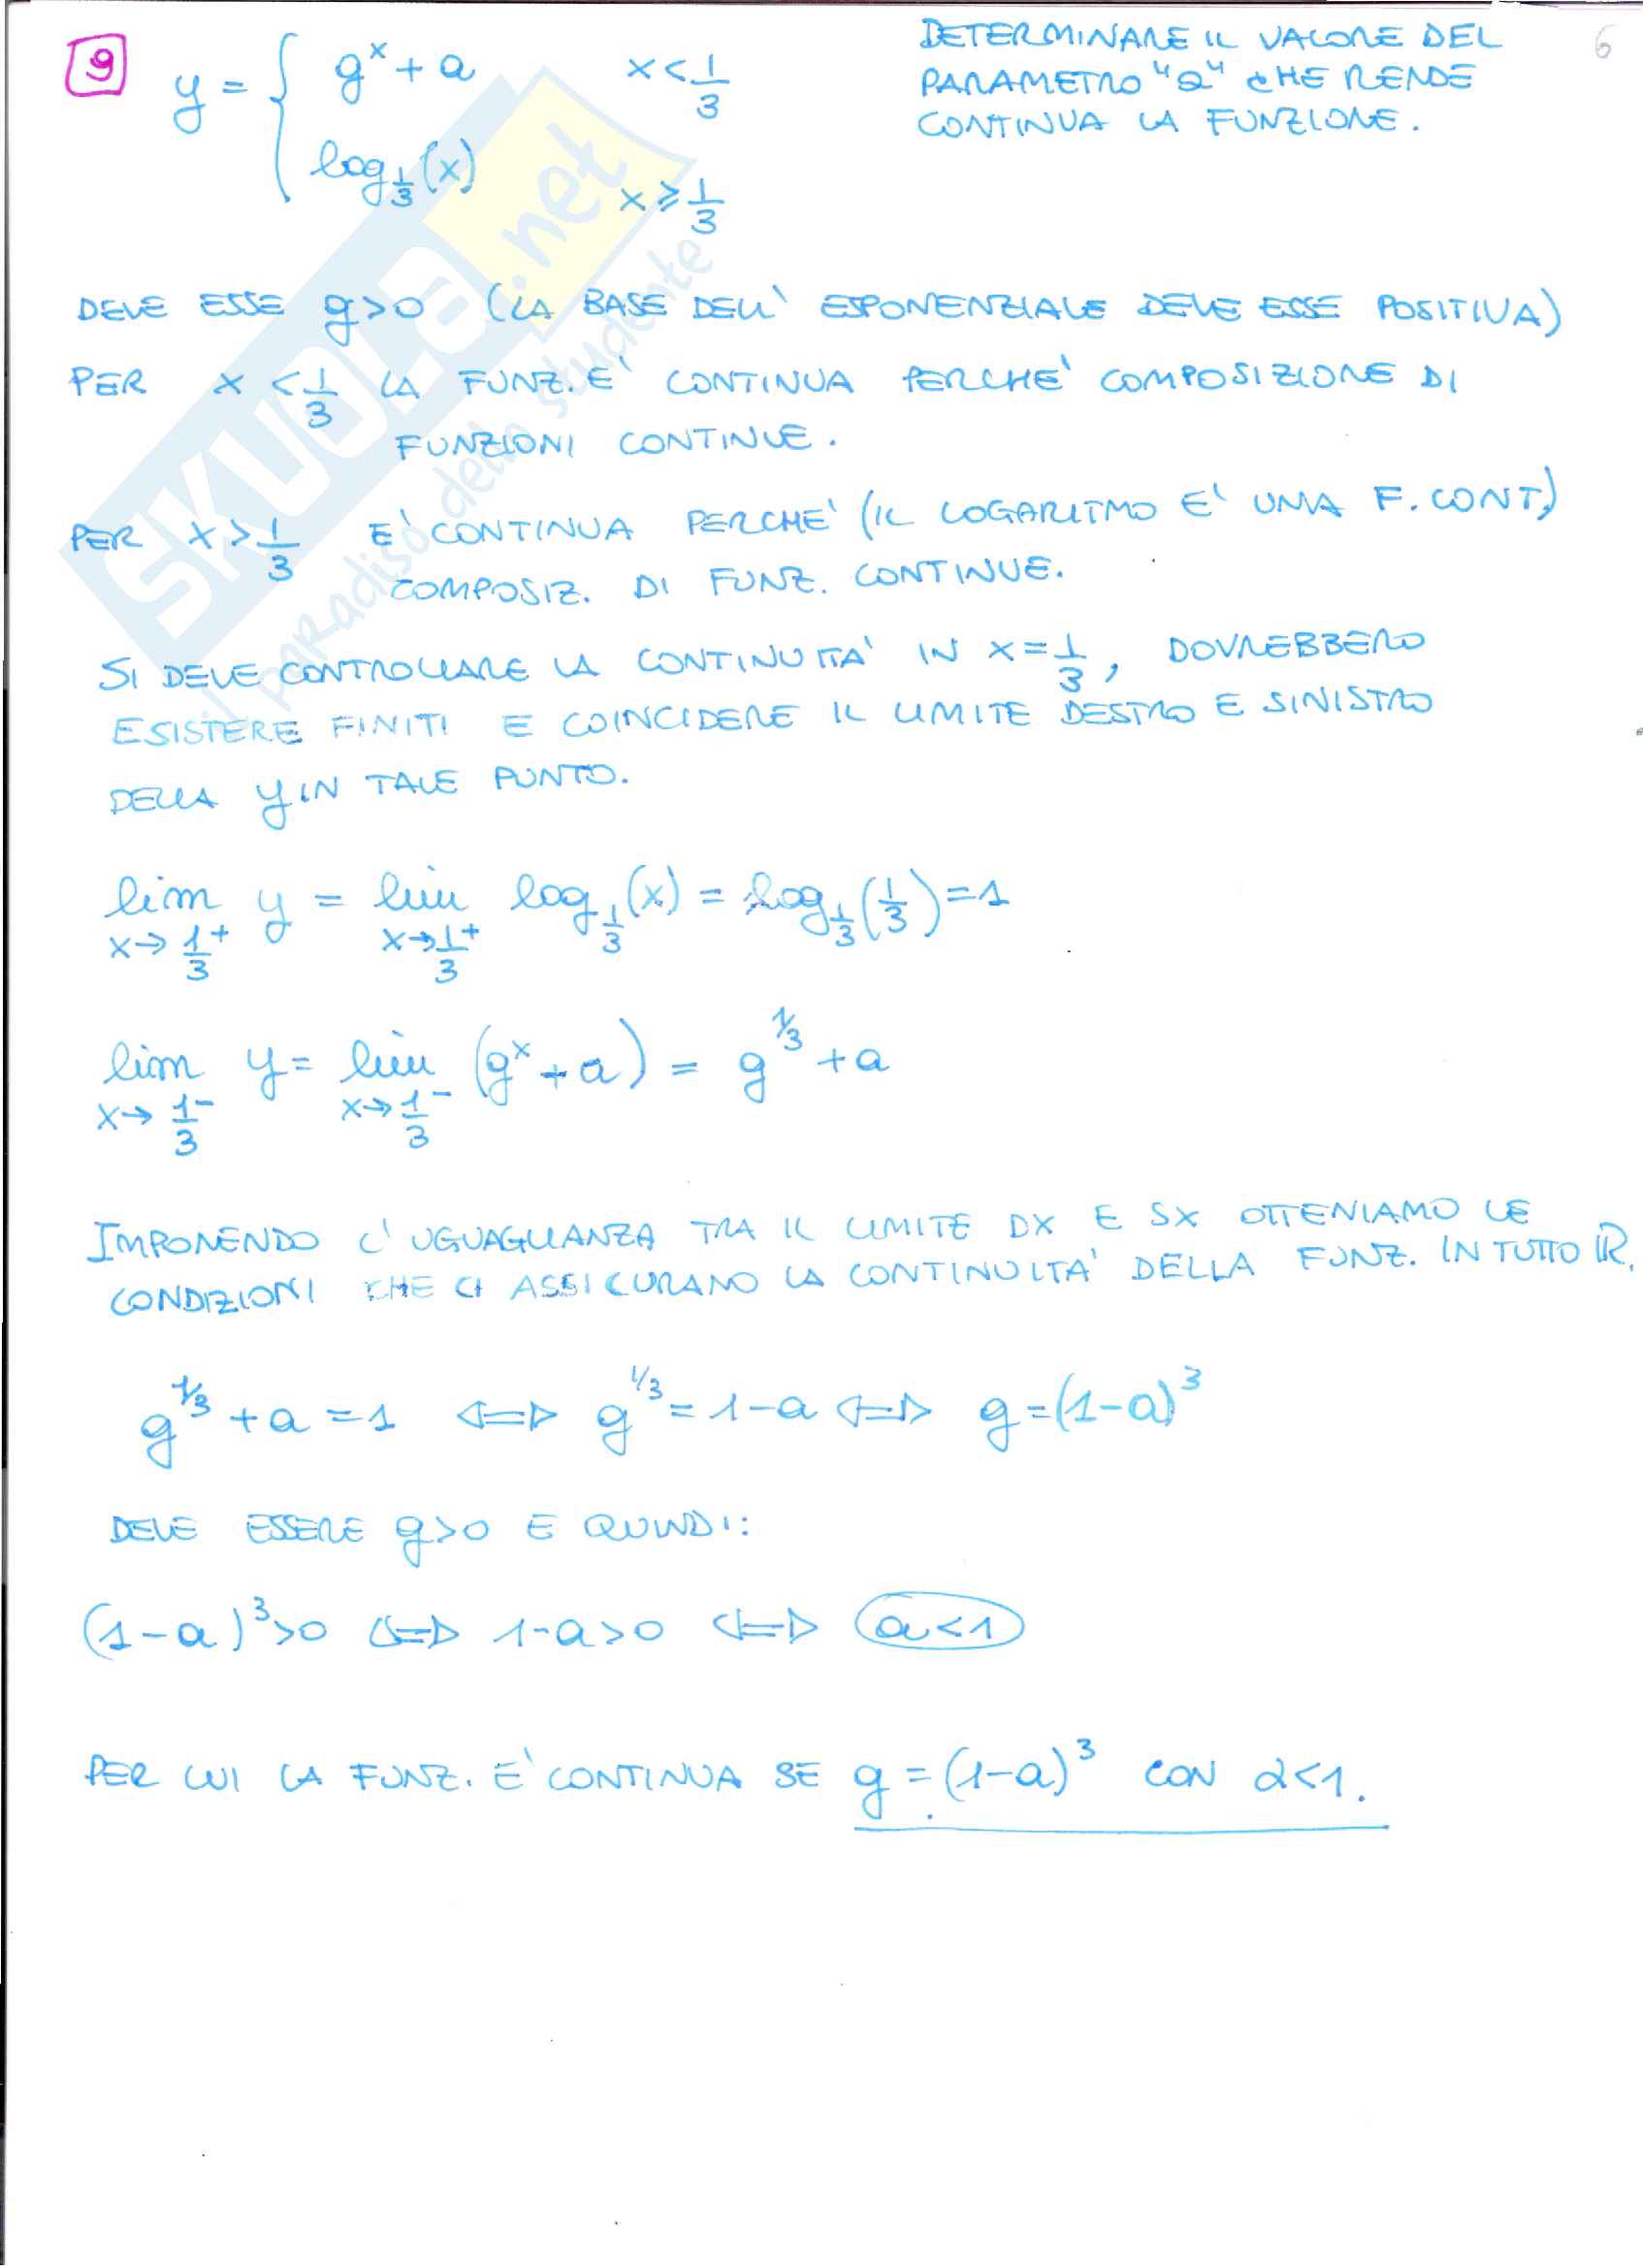 9 y = { g^x + a x < 1/3 DETERMINARE IL VALORE DEL 6
PARAMETRO "a" CHE RENDE
CONTINUA LA FUNZIONE.
log_{1/3}(x) x ⩾ 1/3
DEVE ESSE g>0 (LA BASE DELL' ESPONENZIALE DEVE ESSE POSITIVA)
PER x < 1/3 LA FUNZ. E' CONTINUA PERCHE' COMPOSIZIONE DI
FUNZIONI CONTINUE.
PER x > 1/3 E' CONTINUA PERCHE' (IL LOGARITMO E' UNA F. CONT.)
COMPOSIZ. DI FUNZ. CONTINUE.
SI DEVE CONTROLLARE LA CONTINUITA' IN x = 1/3, DOVREBBERO
ESISTERE FINITI E COINCIDERE IL LIMITE DESTRO E SINISTRO
DELLA y IN TALE PUNTO.
lim_{x→1/3^+} y = lim_{x→1/3^+} log_{1/3}(x) = log_{1/3}(1/3) = 1
lim_{x→1/3^-} y = lim_{x→1/3^-} (g^x + a) = g^{1/3} + a
IMPONENDO L'UGUAGLIANZA TRA IL LIMITE DX E SX OTTENIAMO LE
CONDIZIONI CHE CI ASSICURANO LA CONTINUITA' DELLA FUNZ. IN TUTTO ℝ.
g^{1/3} + a = 1 ⇔ g^{1/3} = 1-a ⇔ g = (1-a)^3
DEVE ESSERE g>0 E QUINDI:
(1-a)^3 > 0 ⇔ 1-a > 0 ⇔ a < 1
PER CUI LA FUNZ. E' CONTINUA SE g = (1-a)^3 CON a<1.
SKUOLA.net
il paradiso dello studente